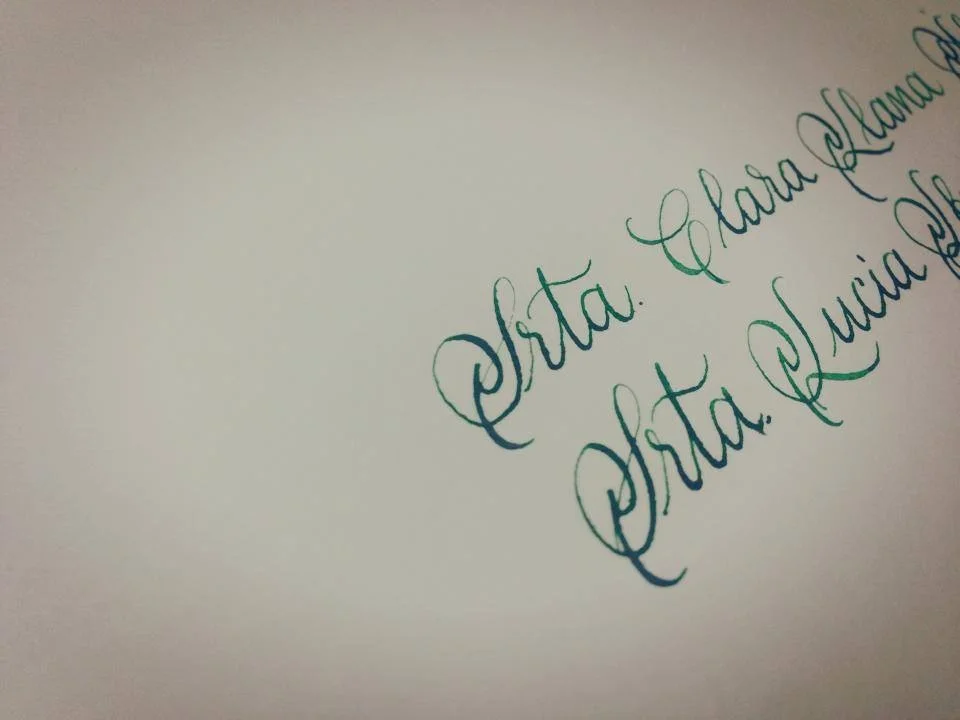 Srta. Clara Llana
Srta. Lucia